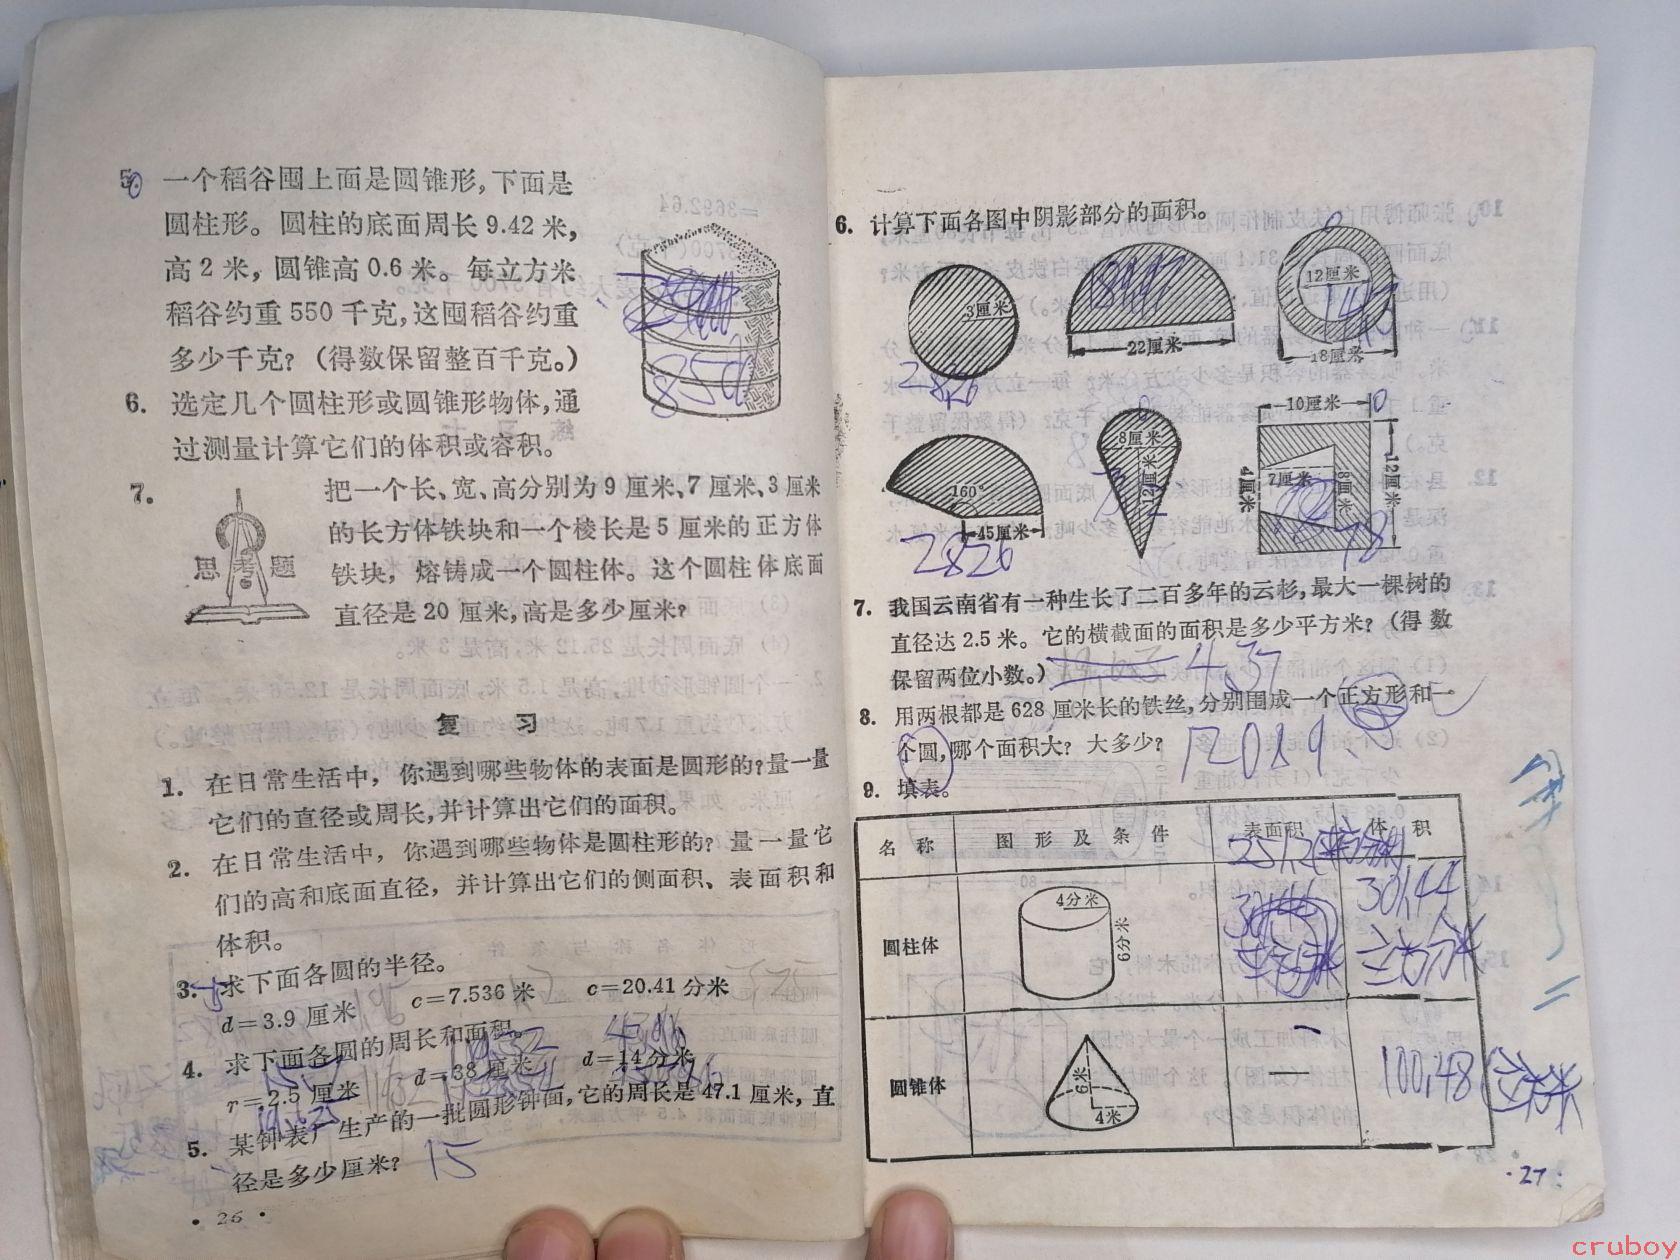 5.
一个稻谷囤上面是圆锥形，下面是
圆柱形。圆柱的底面周长9.42米，
高2米，圆锥高0.6米。每立方米
稻谷约重550千克，这囤稻谷约重
多少千克？（得数保留整百千克。）
6. 选定几个圆柱形或圆锥形物体，通
过测量计算它们的体积或容积。
7.
思考题
把一个长、宽、高分别为9厘米、7厘米、3厘米
的长方体铁块和一个棱长是5厘米的正方体
铁块，熔铸成一个圆柱体。这个圆柱体底面
直径是20厘米，高是多少厘米？
复 习
1. 在日常生活中，你遇到哪些物体的表面是圆形的？量一量
它们的直径或周长，并计算出它们的面积。
2. 在日常生活中，你遇到哪些物体是圆柱形的？量一量它
们的高和底面直径，并计算出它们的侧面积、表面积和
体积。
3. 求下面各圆的半径。
d=3.9厘米 c=7.536米 c=20.41分米
4. 求下面各圆的周长和面积。
r=2.5厘米 d=38厘米 d=14分米
5. 某钟表厂生产的一批圆形钟面，它的周长是47.1厘米，直
径是多少厘米？ 15
·26·
6. 计算下面各图中阴影部分的面积。
3厘米
22厘米
12厘米
18厘米
28.26
160°
45厘米
2826
8厘米
12厘米
10厘米
4厘米
7厘米
8厘米
12厘米
78
7. 我国云南省有一种生长了二百多年的云杉，最大一棵树的
直径达2.5米。它的横截面的面积是多少平方米？（得数
保留两位小数。）
8. 用两根都是628厘米长的铁丝，分别围成一个正方形和一
个圆，哪个面积大？大多少？
9. 填表。
名称 图形及条件 表面积 体积
圆柱体 4分米 6分米 301.44
圆锥体 6米 4米 — 100.48
·27·
cruboy